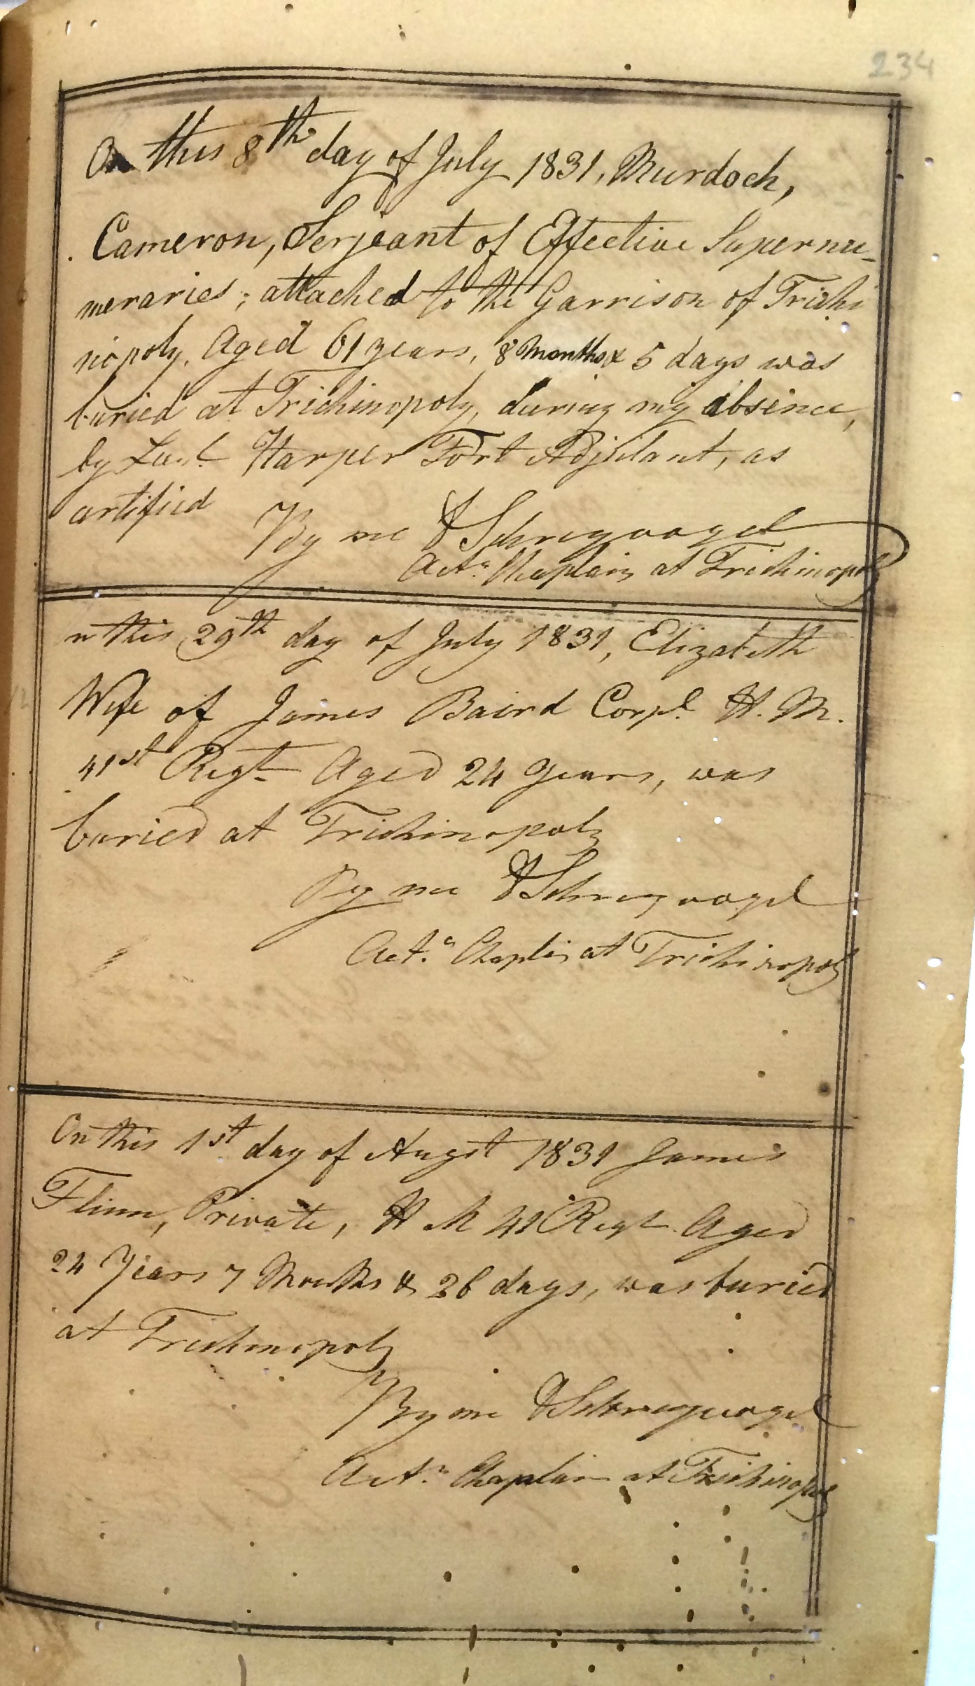 234
On this 8th day of July 1831, Murdoch,
Cameron, Serjeant of Effective Supernu-
meraries; attached to the Garrison of Trichi
nopoly, Aged 61 years, 8 Months & 5 days was
buried at Trichinopoly, during my absence,
by Lieut. Harper Fort Adjutant, as
certified
By me Schreyvogel
Actg. Chaplain at Trichinopoly
n this 29th day of July 1831, Elizabeth
Wife of James Baird Corpl. H. M.
41st Regt Aged 24 Years, was
buried at Trichinopoly
By me Schreyvogel
Actg. Chaplin at Trichinopoly
On this 1st day of Augst 1831 James
Flinn, Private, H M 41 Regt. Aged
24 Years 7 Months & 26 days, was buried
at Trichinopoly
By me Schreyvogel
Actg. Chaplain at Trichinopoly